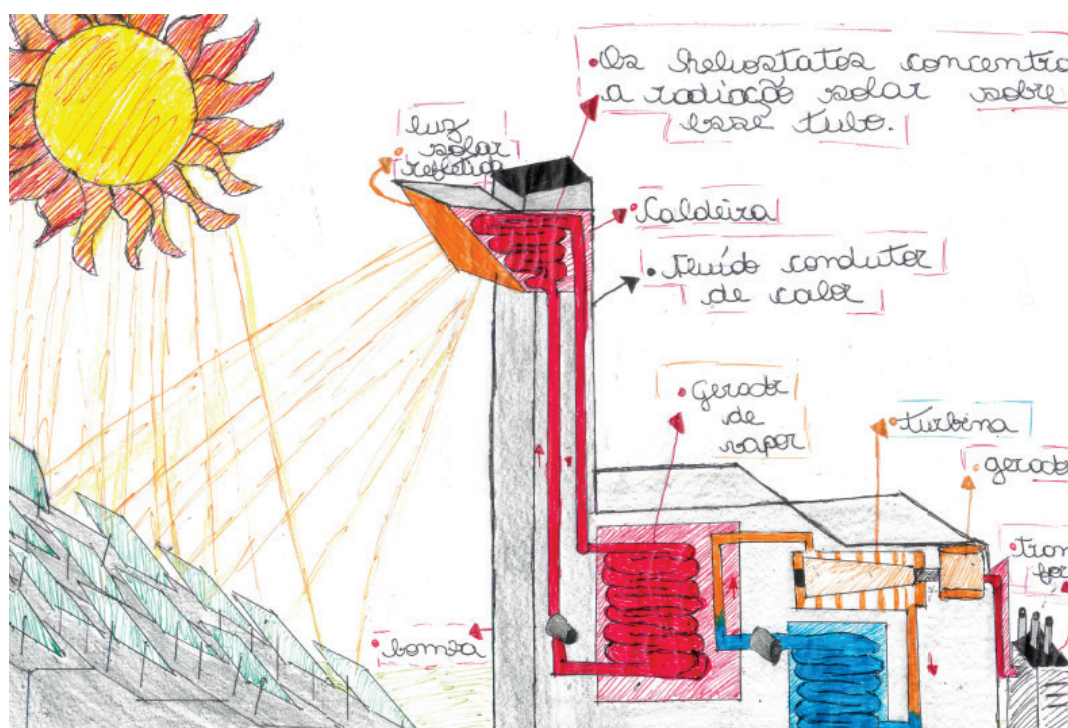 • Os heliostatos concentra
a radiação solar sobre
esse tubo.
luz
solar
refletida
• Caldeira
• Fluído condutor
de calor
• Gerador
de
vapor
• turbina
• gerado
• tran
for
• bomba